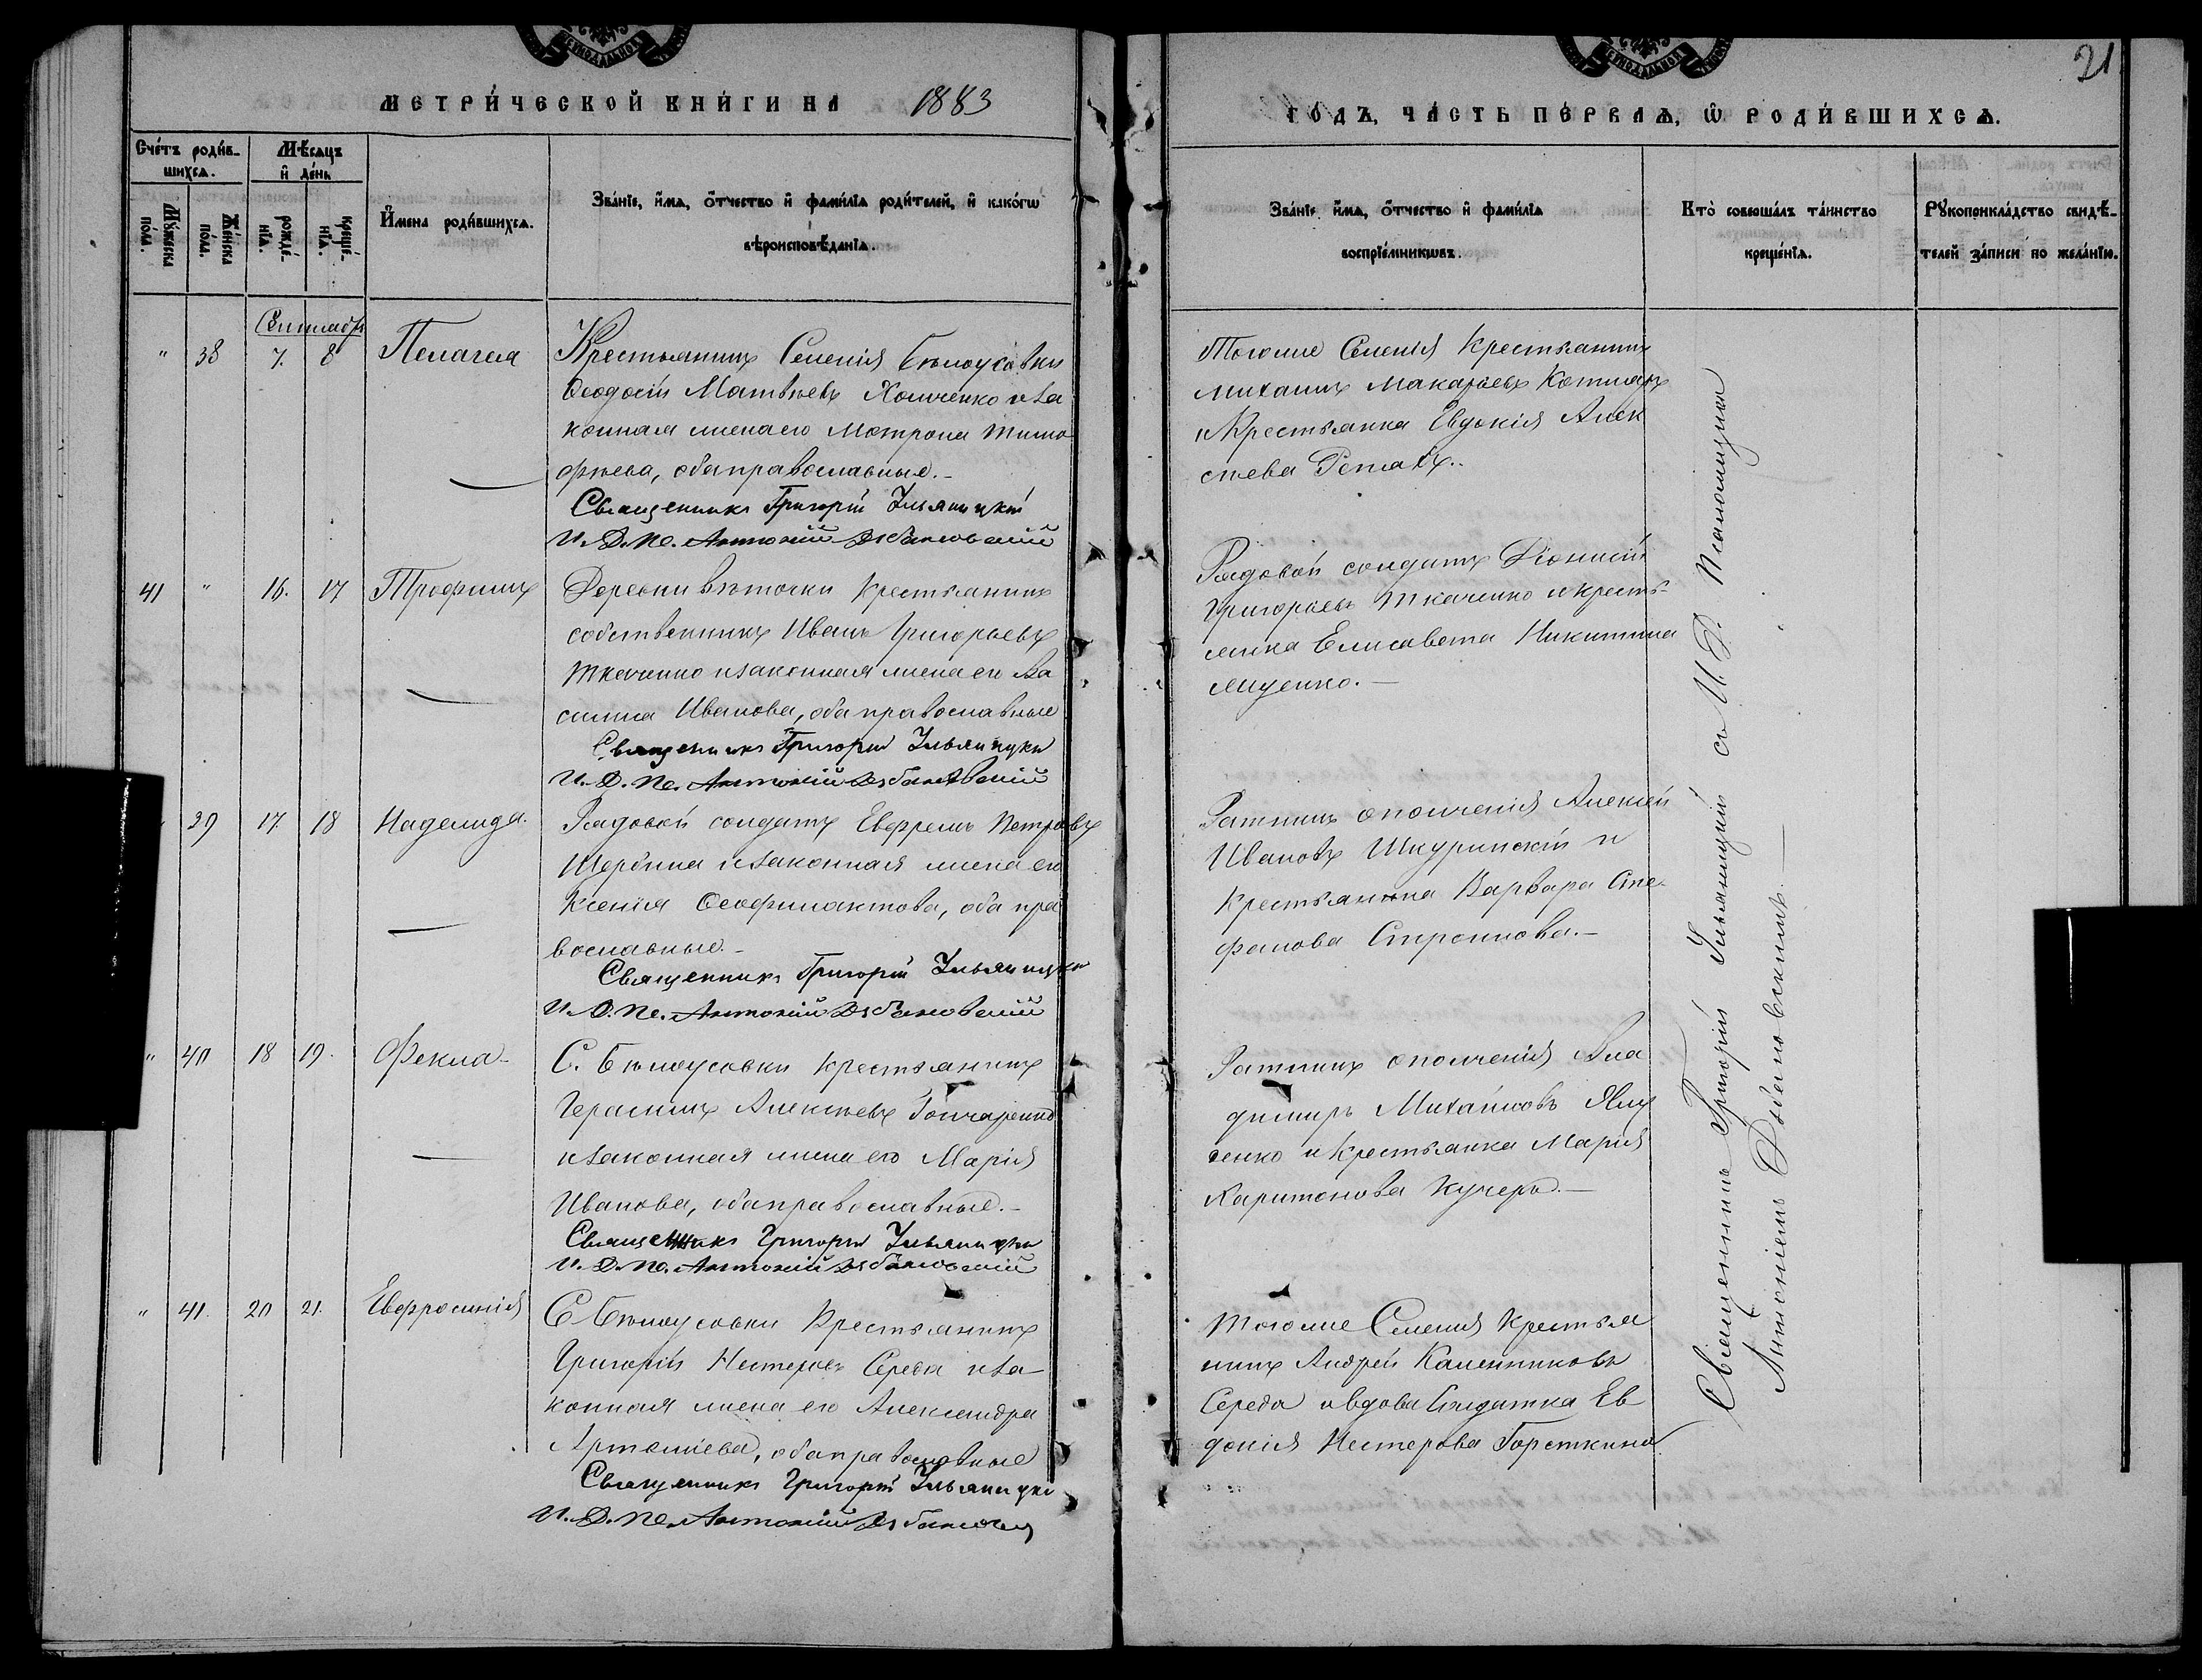 21
МЕТРИ́ЧЕСКОЙ КНИ́ГИ НА 1883
ГО́ДЪ, ЧА́СТЬ ПЕ́РВАѦ, Ѿ РОДИ́ВШИХСѦ.
Сче́тъ роди́в-
шихсѧ.
Мѣ́сѧцъ
и де́нь
Мꙋ́жеска
по́ла.
Же́нска
по́ла.
рожде́-
нїѧ.
креще́-
нїѧ.
И҆мена роди́вшихсѧ.
Зва́нїе, и҆́мѧ, ѻ҆́тчество и҆ фами́лїѧ роди́телей, и҆ како́гѡ
вѣроисповѣ́данїѧ.
Зва́нїе, и҆́мѧ, ѻ҆́тчество и҆ фами́лїѧ
воспрїе́мникѡвъ.
Кто̀ соверша́лъ та́инство
креще́нїѧ.
Рꙋкоприкла́дство свидѣ́-
телей за́писи по жела́нїю.
Сентябр
" 38 7. 8 Пелагея
Крестьянинъ Селенія Бѣлоусовки
Ѳеодосій Матвѣевъ Хомченко и за
конная жена его Мотрона Тимо
фѣева, оба православные.-
Священникъ Григорій Ульяницкій
И. Д. Пс. Антоній Дыбановскій
Тогоже Селенія Крестьянинъ
Михаилъ Макаріевъ Котляръ
и Крестьянка Евдокія Алек
сѣева
41 " 16. 17 Трофимъ
Деревни Вѣточки Крестьянинъ
собственникъ Иванъ Григорьевъ
Ткаченко и законная жена его Ва
силиса Иванова, оба православные
Священникъ Григорій Ульяницкій
И. Д. Пс. Антоній Дыбановскій
Рядовой солдатъ Діонисій
Григоріевъ Ткаченко и кресть-
янка Елисавета Никитина
39 17. 18 Надежда.
Рядовой солдатъ Ефремъ Петровъ
Щербина и законная жена его
Ксенія Ѳеофилактова, оба пра
вославные.-
Священникъ Григорій Ульяницкій
И. Д. Пс. Антоній Дыбановскій
Ратникъ ополченія Алексѣй
Ивановъ Шкуринскій и
Крестьянка Варвара Сте-
фанова
" 40 18 19. Фекла-
С. Бѣлоусовки крестьянинъ
Герасимъ Алексѣевъ Гончаренко
и законная жена его Марія
Иванова, оба православные.-
Священникъ Григорій Ульяницкій
И. Д. Пс. Антоній Дыбановскій
Ратникъ ополченія Вла
димиръ Михайловъ Ящ
енко и Крестьянка Марія
Харитонова Кучеръ.-
" 41. 20 21. Евфросинія
С Бѣлоусовки Крестьянинъ
Григорій Нестеровъ Середа и за-
конная жена его Александра
Артеміева, оба православные
Священникъ Григорій Ульяницкій
И. Д. Пс. Антоній
Тогоже Селенія Крестья
нинъ Андрей Калинниковъ
Середа и вдова Солдатка Ев
докія Нестерова
Священникъ Григорій Ульяницкій съ И. Д. Псаломщика
Антоніемъ Дыбановскимъ.-